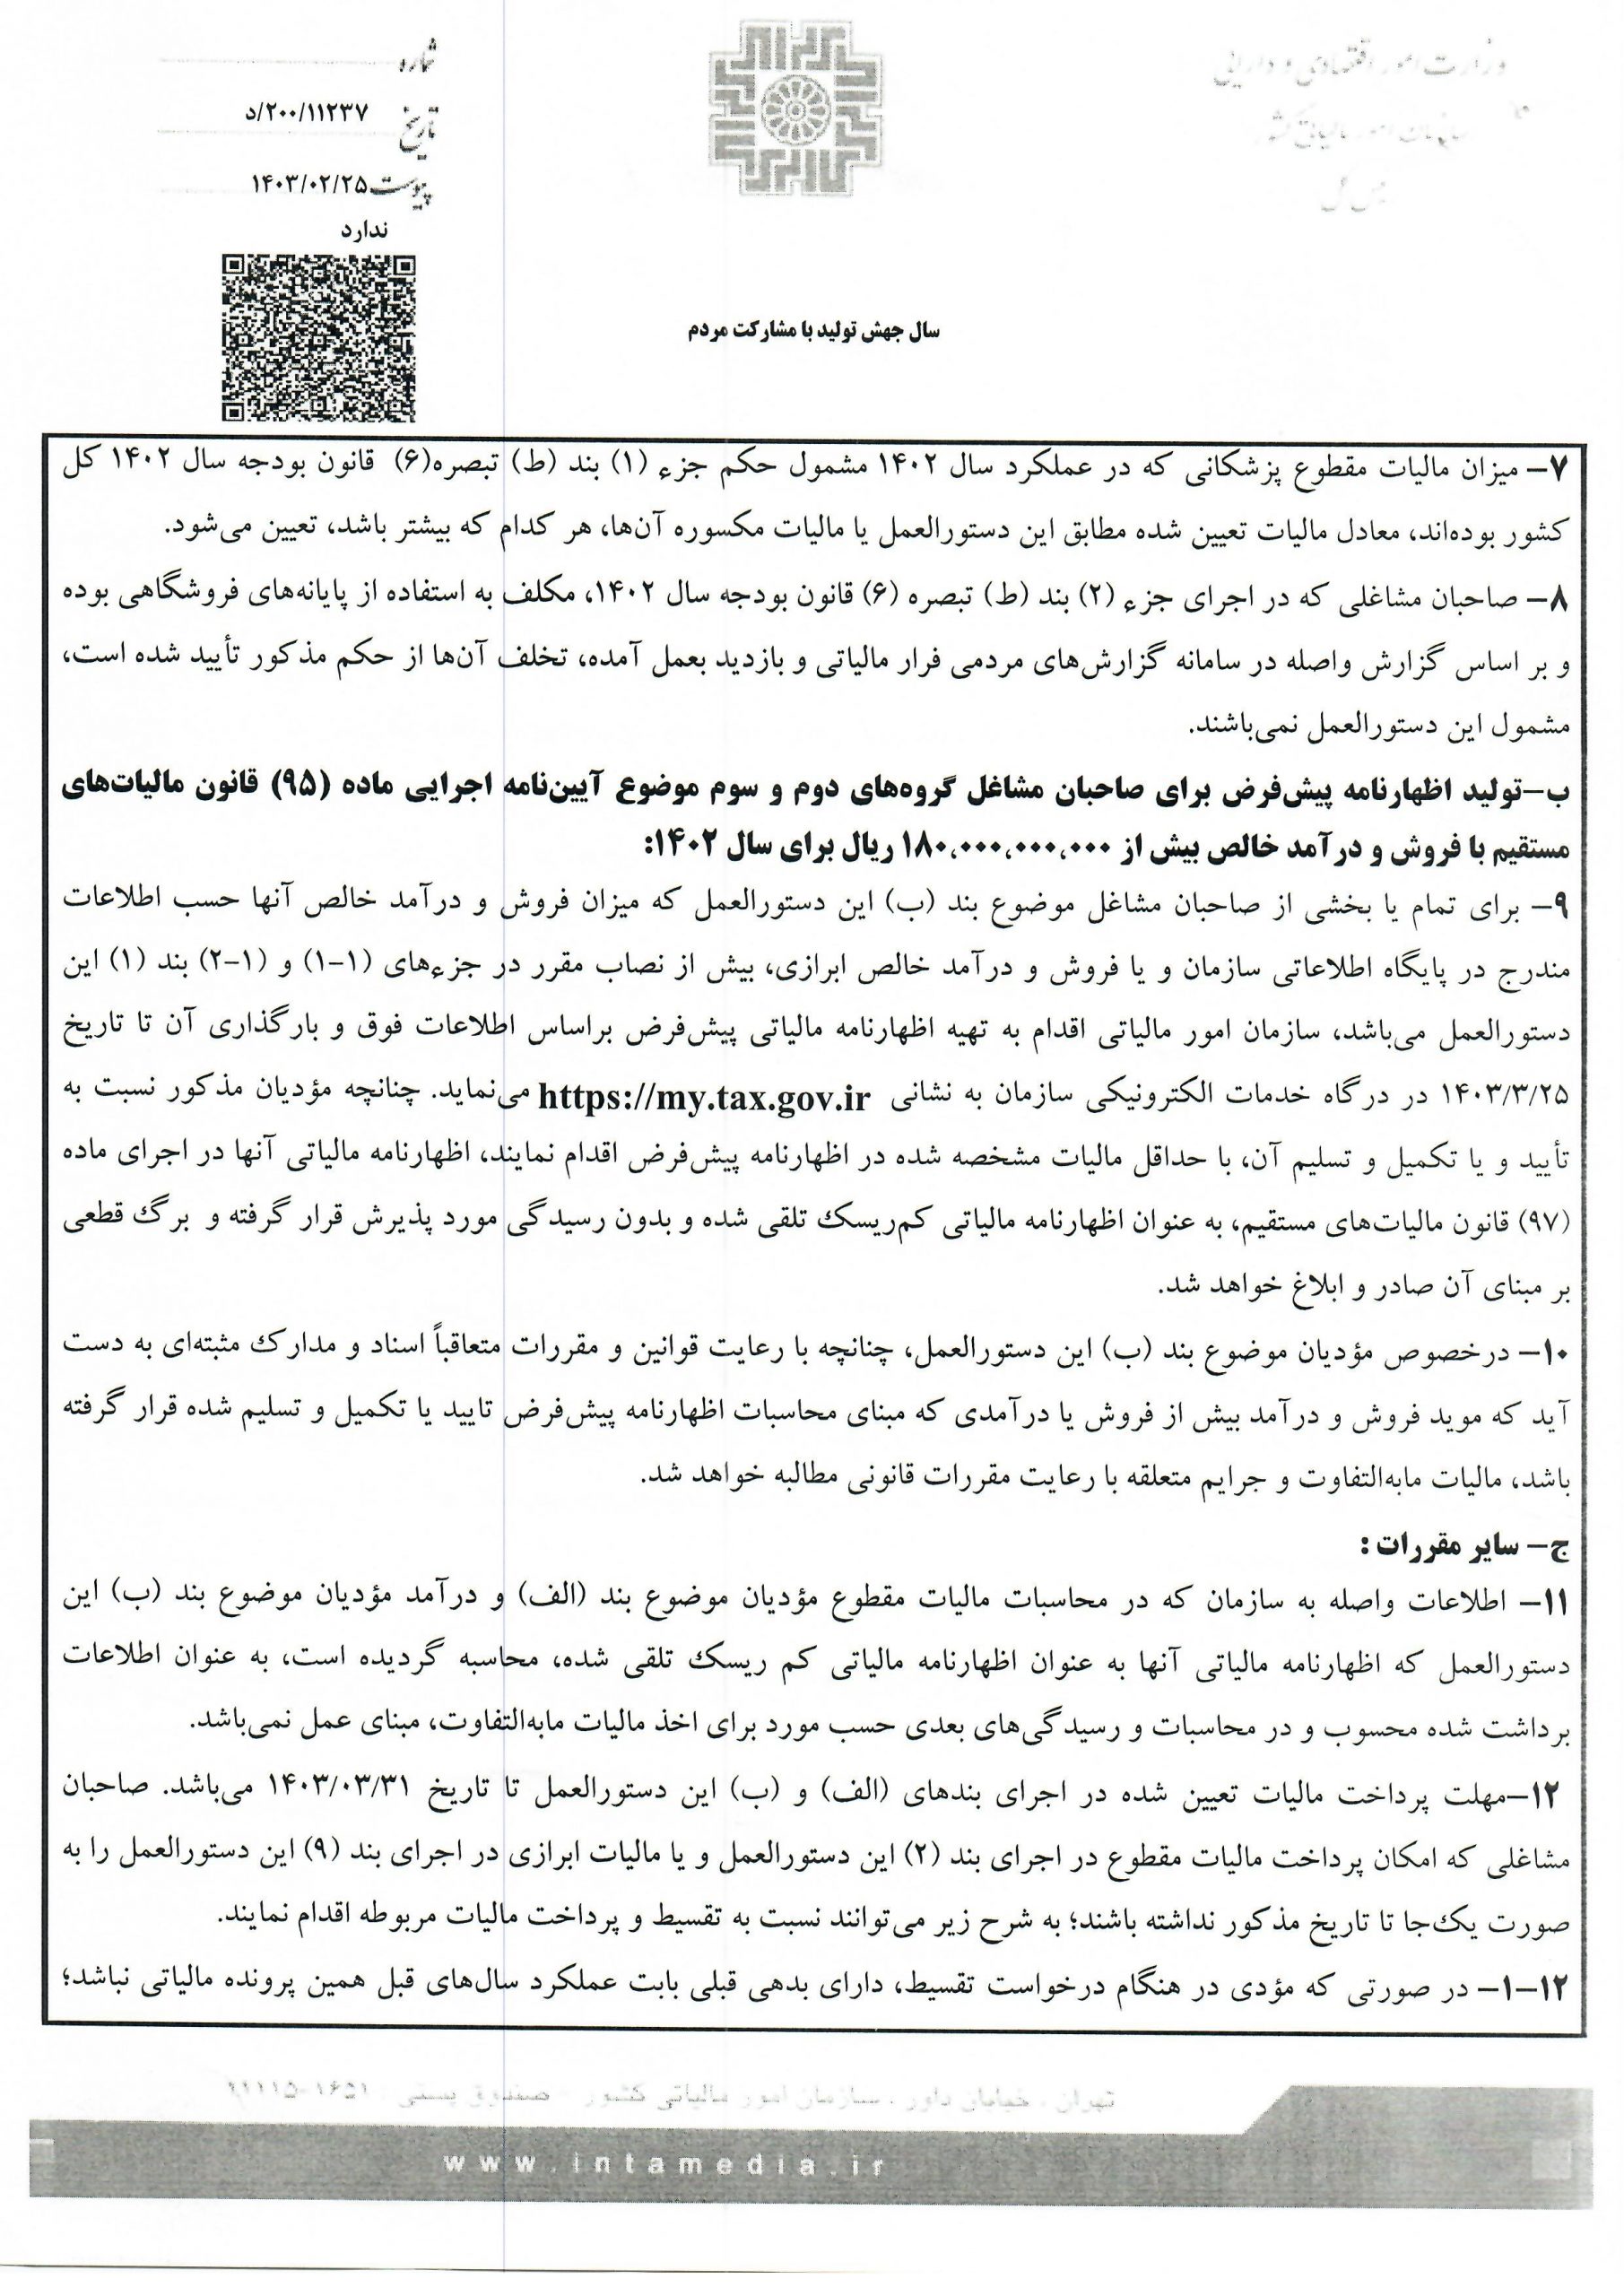 شماره
۲۰۰/۱۱۲۳۷/د
تاریخ
۱۴۰۳/۰۲/۲۵
پیوست
ندارد
سال جهش تولید با مشارکت مردم
۷– میزان مالیات مقطوع پزشکانی که در عملکرد سال ۱۴۰۲ مشمول حکم جزء (۱) بند (ط) تبصره(۶) قانون بودجه سال ۱۴۰۲ کل
کشور بوده‌اند، معادل مالیات تعیین شده مطابق این دستورالعمل یا مالیات مکسوره آن‌ها، هر کدام که بیشتر باشد، تعیین می‌شود.
۸– صاحبان مشاغلی که در اجرای جزء (۲) بند (ط) تبصره (۶) قانون بودجه سال ۱۴۰۲، مکلف به استفاده از پایانه‌های فروشگاهی بوده
و بر اساس گزارش واصله در سامانه گزارش‌های مردمی فرار مالیاتی و بازدید بعمل آمده، تخلف آن‌ها از حکم مذکور تأیید شده است،
مشمول این دستورالعمل نمی‌باشند.
ب–تولید اظهارنامه پیش‌فرض برای صاحبان مشاغل گروه‌های دوم و سوم موضوع آیین‌نامه اجرایی ماده (۹۵) قانون مالیات‌های
مستقیم با فروش و درآمد خالص بیش از ۱۸۰،۰۰۰،۰۰۰،۰۰۰ ریال برای سال ۱۴۰۲:
۹– برای تمام یا بخشی از صاحبان مشاغل موضوع بند (ب) این دستورالعمل که میزان فروش و درآمد خالص آنها حسب اطلاعات
مندرج در پایگاه اطلاعاتی سازمان و یا فروش و درآمد خالص ابرازی، بیش از نصاب مقرر در جزءهای (۱-۱) و (۱-۲) بند (۱) این
دستورالعمل می‌باشد، سازمان امور مالیاتی اقدام به تهیه اظهارنامه مالیاتی پیش‌فرض براساس اطلاعات فوق و بارگذاری آن تا تاریخ
۱۴۰۳/۳/۲۵ در درگاه خدمات الکترونیکی سازمان به نشانی https://my.tax.gov.ir می‌نماید. چنانچه مؤدیان مذکور نسبت به
تأیید و یا تکمیل و تسلیم آن، با حداقل مالیات مشخصه شده در اظهارنامه پیش‌فرض اقدام نمایند، اظهارنامه مالیاتی آنها در اجرای ماده
(۹۷) قانون مالیات‌های مستقیم، به عنوان اظهارنامه مالیاتی کم‌ریسک تلقی شده و بدون رسیدگی مورد پذیرش قرار گرفته و برگ قطعی
بر مبنای آن صادر و ابلاغ خواهد شد.
۱۰– درخصوص مؤدیان موضوع بند (ب) این دستورالعمل، چنانچه با رعایت قوانین و مقررات متعاقباً اسناد و مدارک مثبته‌ای به دست
آید که موید فروش و درآمد بیش از فروش یا درآمدی که مبنای محاسبات اظهارنامه پیش‌فرض تایید یا تکمیل و تسلیم شده قرار گرفته
باشد، مالیات مابه‌التفاوت و جرایم متعلقه با رعایت مقررات قانونی مطالبه خواهد شد.
ج– سایر مقررات :
۱۱– اطلاعات واصله به سازمان که در محاسبات مالیات مقطوع مؤدیان موضوع بند (الف) و درآمد مؤدیان موضوع بند (ب) این
دستورالعمل که اظهارنامه مالیاتی آنها به عنوان اظهارنامه مالیاتی کم ریسک تلقی شده، محاسبه گردیده است، به عنوان اطلاعات
برداشت شده محسوب و در محاسبات و رسیدگی‌های بعدی حسب مورد برای اخذ مالیات مابه‌التفاوت، مبنای عمل نمی‌باشد.
۱۲–مهلت پرداخت مالیات تعیین شده در اجرای بندهای (الف) و (ب) این دستورالعمل تا تاریخ ۱۴۰۳/۰۳/۳۱ می‌باشد. صاحبان
مشاغلی که امکان پرداخت مالیات مقطوع در اجرای بند (۲) این دستورالعمل و یا مالیات ابرازی در اجرای بند (۹) این دستورالعمل را به
صورت یک‌جا تا تاریخ مذکور نداشته باشند؛ به شرح زیر می‌توانند نسبت به تقسیط و پرداخت مالیات مربوطه اقدام نمایند.
۱۲–۱– در صورتی که مؤدی در هنگام درخواست تقسیط، دارای بدهی قبلی بابت عملکرد سال‌های قبل همین پرونده مالیاتی نباشد؛
تهران ، خیابان داور ، سازمان امور مالیاتی کشور - صندوق پستی :
www.intamedia.ir